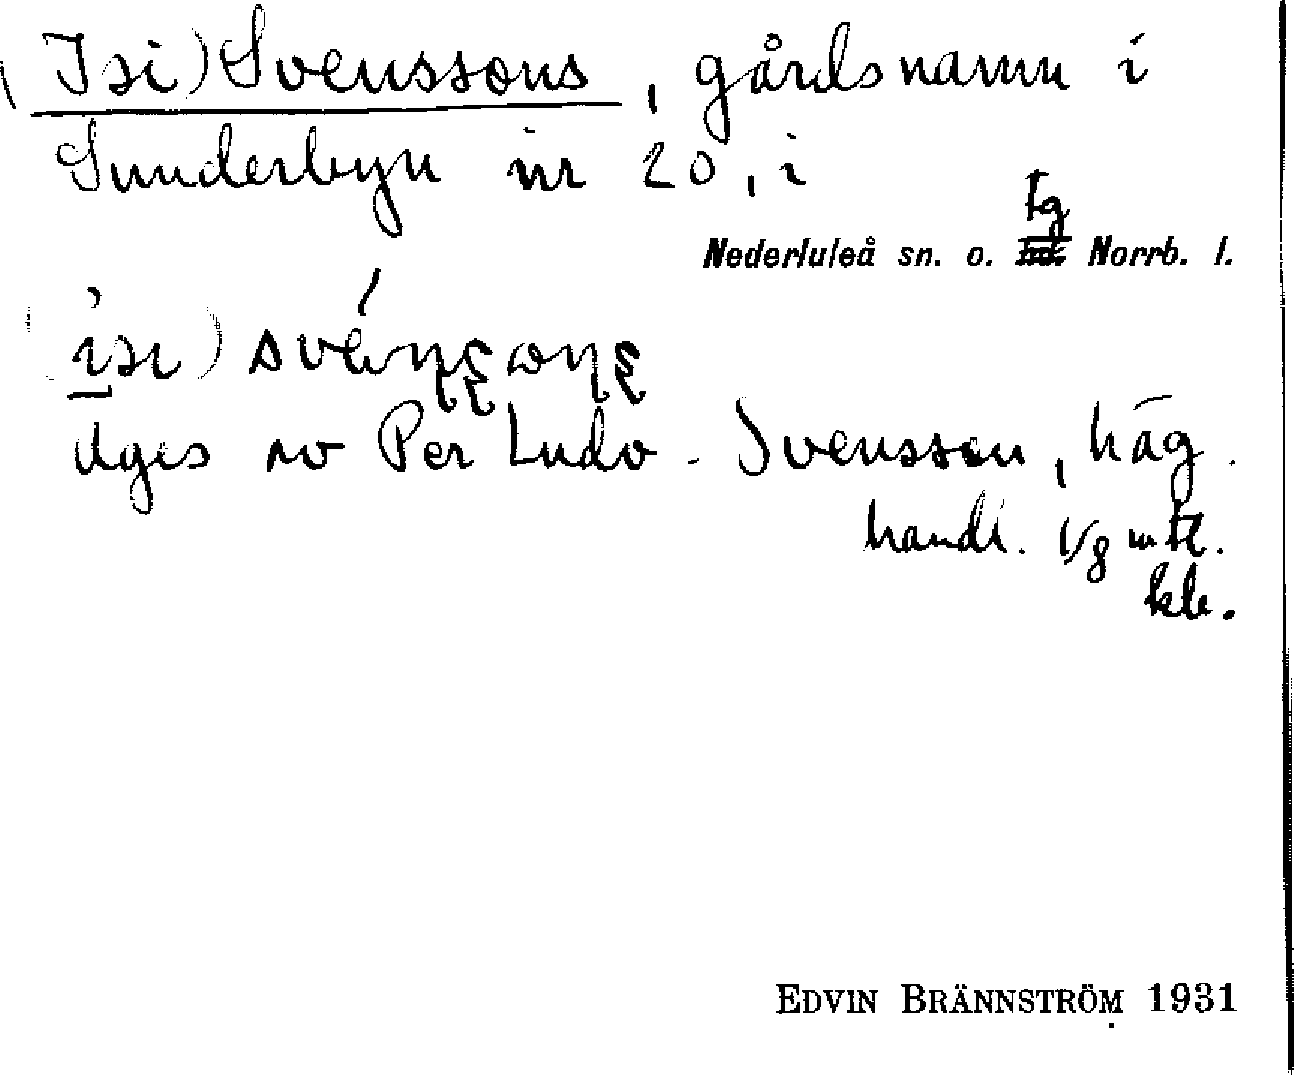 (Isi) Svenssons, gårdsnamn i
Sunderbyn nr 20, i
tg
Nederluleå sn. o. hd. Norrb. l.
isi)
Äges av Per Ludv. Svensson, häg.
handl. 1/8 mtl.
kb.
EDVIN BRÄNNSTRÖM 1931